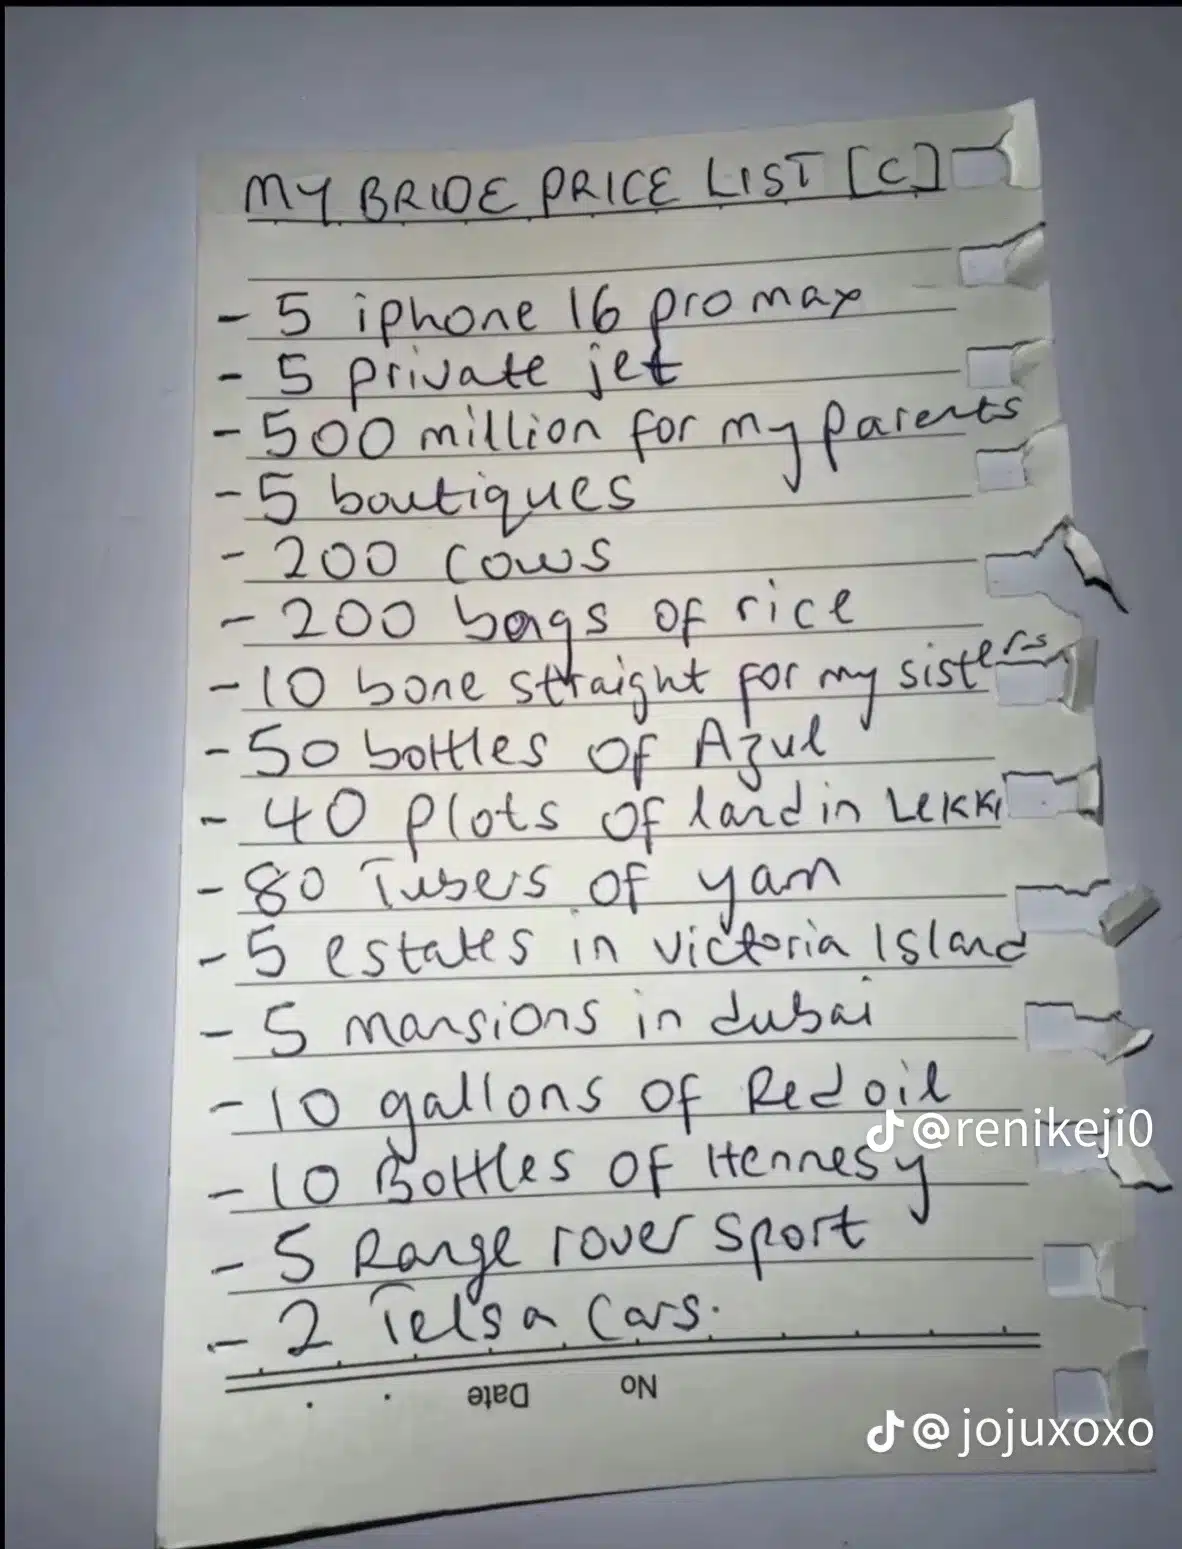 MY BRIDE PRICE LIST [C]
- 5 iphone 16 pro max
- 5 private jet
- 500 million for my parents
- 5 boutiques
- 200 cows
- 200 bags of rice
- 10 bone straight for my sisters
- 50 bottles of Azul
- 40 plots of land in Lekki
- 80 Tubers of yam
- 5 estates in victoria Island
- 5 mansions in dubai
- 10 gallons of Red oil
@renikeji0
- 10 Bottles of Hennesy
- 5 Range rover sport
- 2 Telsa Cars.
No Date
@jojuxoxo